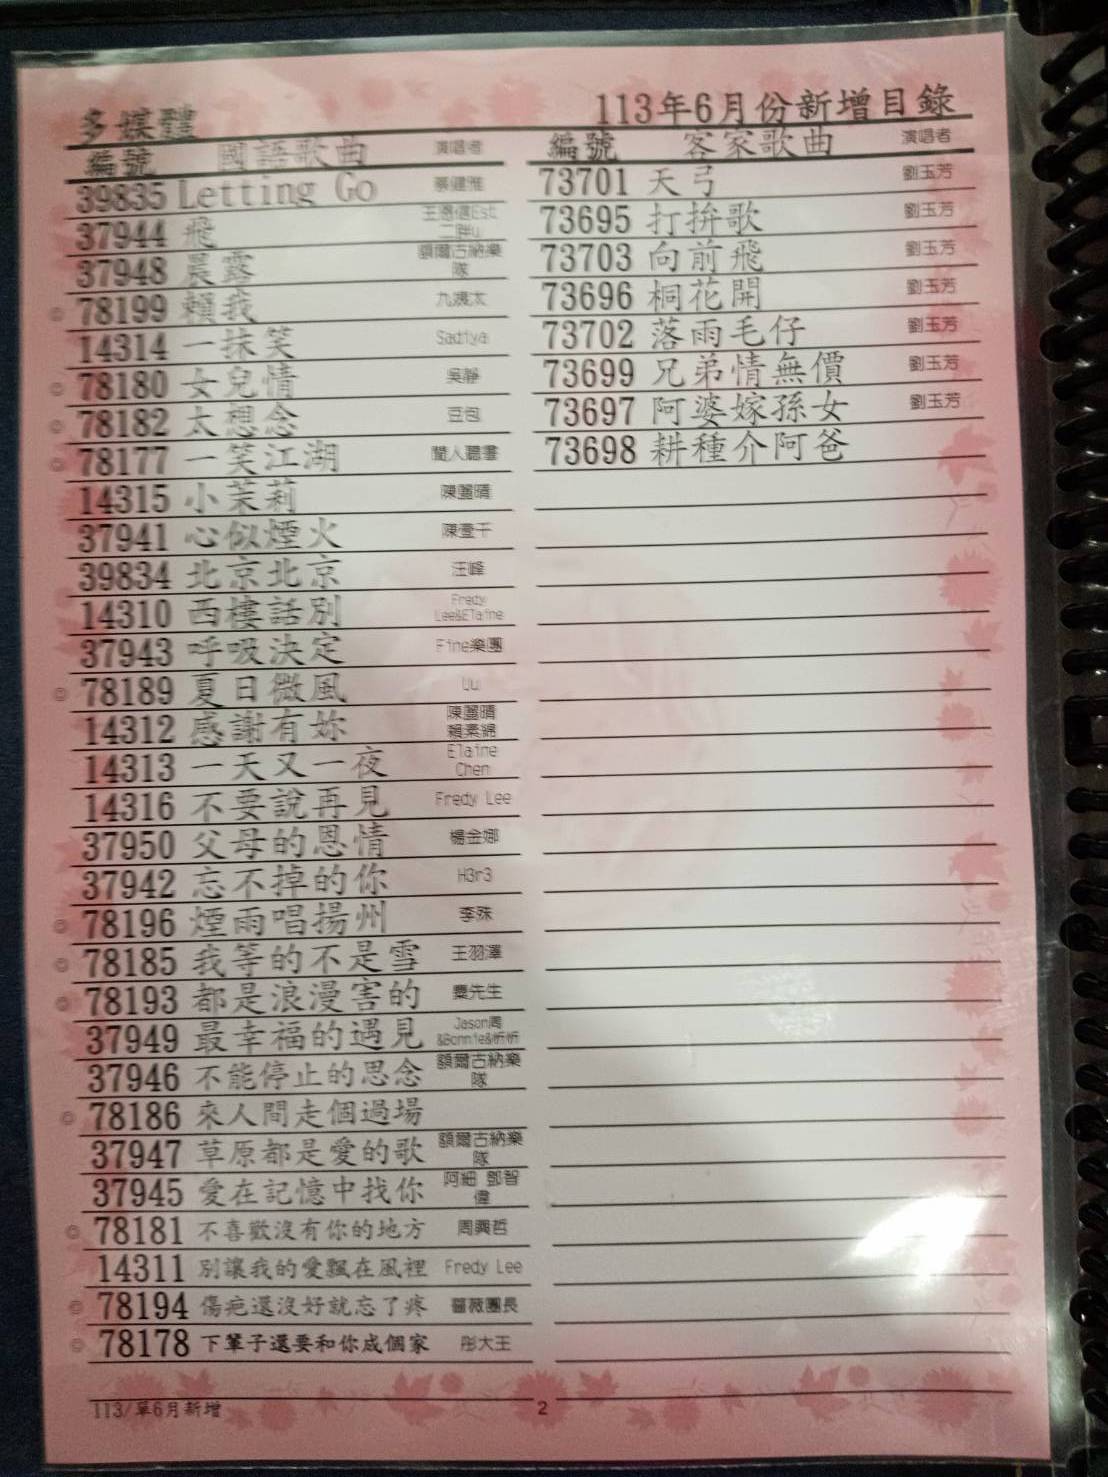 多媒體
113年6月份新增目錄
編號 國語歌曲 演唱者
39835 Letting Go 蔡健雅
37944 飛
37948 晨露 額爾古納樂隊
◎ 78199 賴我 九姨太
14314 一抹笑 Sadiya
◎ 78180 女兒情 吳靜
◎ 78182 太想念 豆包
◎ 78177 一笑江湖 聞人聽書
14315 小茉莉 陳麗晴
37941 心似煙火 陳壹千
39834 北京北京 汪峰
14310 西樓話別 Fredy Lee&Elaine
37943 呼吸決定 Fine樂團
◎ 78189 夏日微風 Uu
14312 感謝有妳 陳麗晴 賴素綿
14313 一天又一夜 Elaine Chen
14316 不要說再見 Fredy Lee
37950 父母的恩情 楊金娜
37942 忘不掉的你 H3r3
◎ 78196 煙雨唱揚州 李殊
◎ 78185 我等的不是雪 王羽澤
◎ 78193 都是浪漫害的 樂先生
37949 最幸福的遇見 Jason周&Bonnie&忻忻
37946 不能停止的思念 額爾古納樂隊
◎ 78186 來人間走個過場
37947 草原都是愛的歌 額爾古納樂隊
37945 愛在記憶中找你 阿細 鄧智偉
◎ 78181 不喜歡沒有你的地方 周興哲
14311 別讓我的愛飄在風裡 Fredy Lee
◎ 78194 傷疤還沒好就忘了疼 薔薇團長
◎ 78178 下輩子還要和你成個家 彤大王
編號 客家歌曲 演唱者
73701 天弓 劉玉芳
73695 打拚歌 劉玉芳
73703 向前飛 劉玉芳
73696 桐花開 劉玉芳
73702 落雨毛仔 劉玉芳
73699 兄弟情無價 劉玉芳
73697 阿婆嫁孫女 劉玉芳
73698 耕種介阿爸
113/單6月新增
2